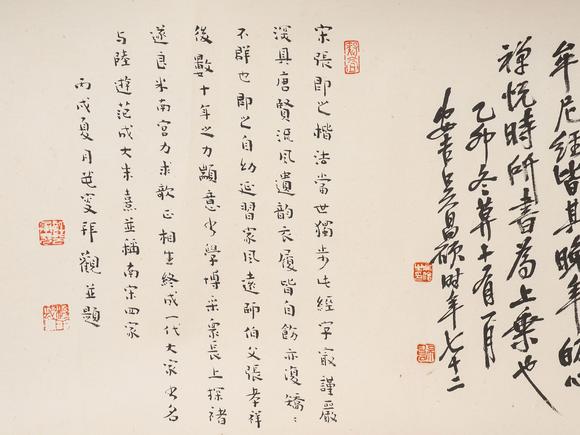 牟尼經皆其晚年的心
禪悅時所書為上乘也
乙卯冬莫十有一月
安吉吳昌碩時年七十二
宋張即之楷法當世獨步此經字㝡謹嚴
深具唐賢流風遺韵衣履皆自飭亦復矯:
不群也即之自幼延習家風遠師伯父張孝祥
後數十年之力顓意書學博采眾長上探褚
遂良米南宮力求欹正相生終成一代大家書名
与陸遊范成大朱熹並稱南宋四家
丙戌夏月拜觀並題